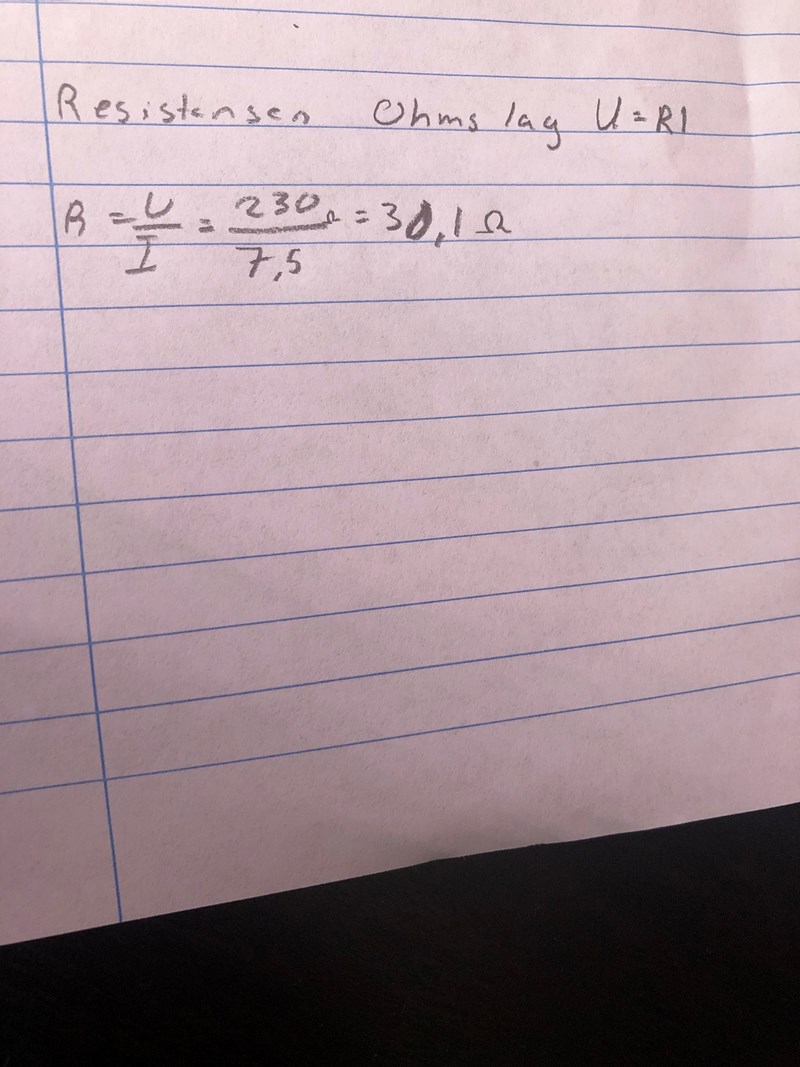 Resistansen Ohms lag U = RI
R = U/I = 230/7,5 Ω = 30,1 Ω